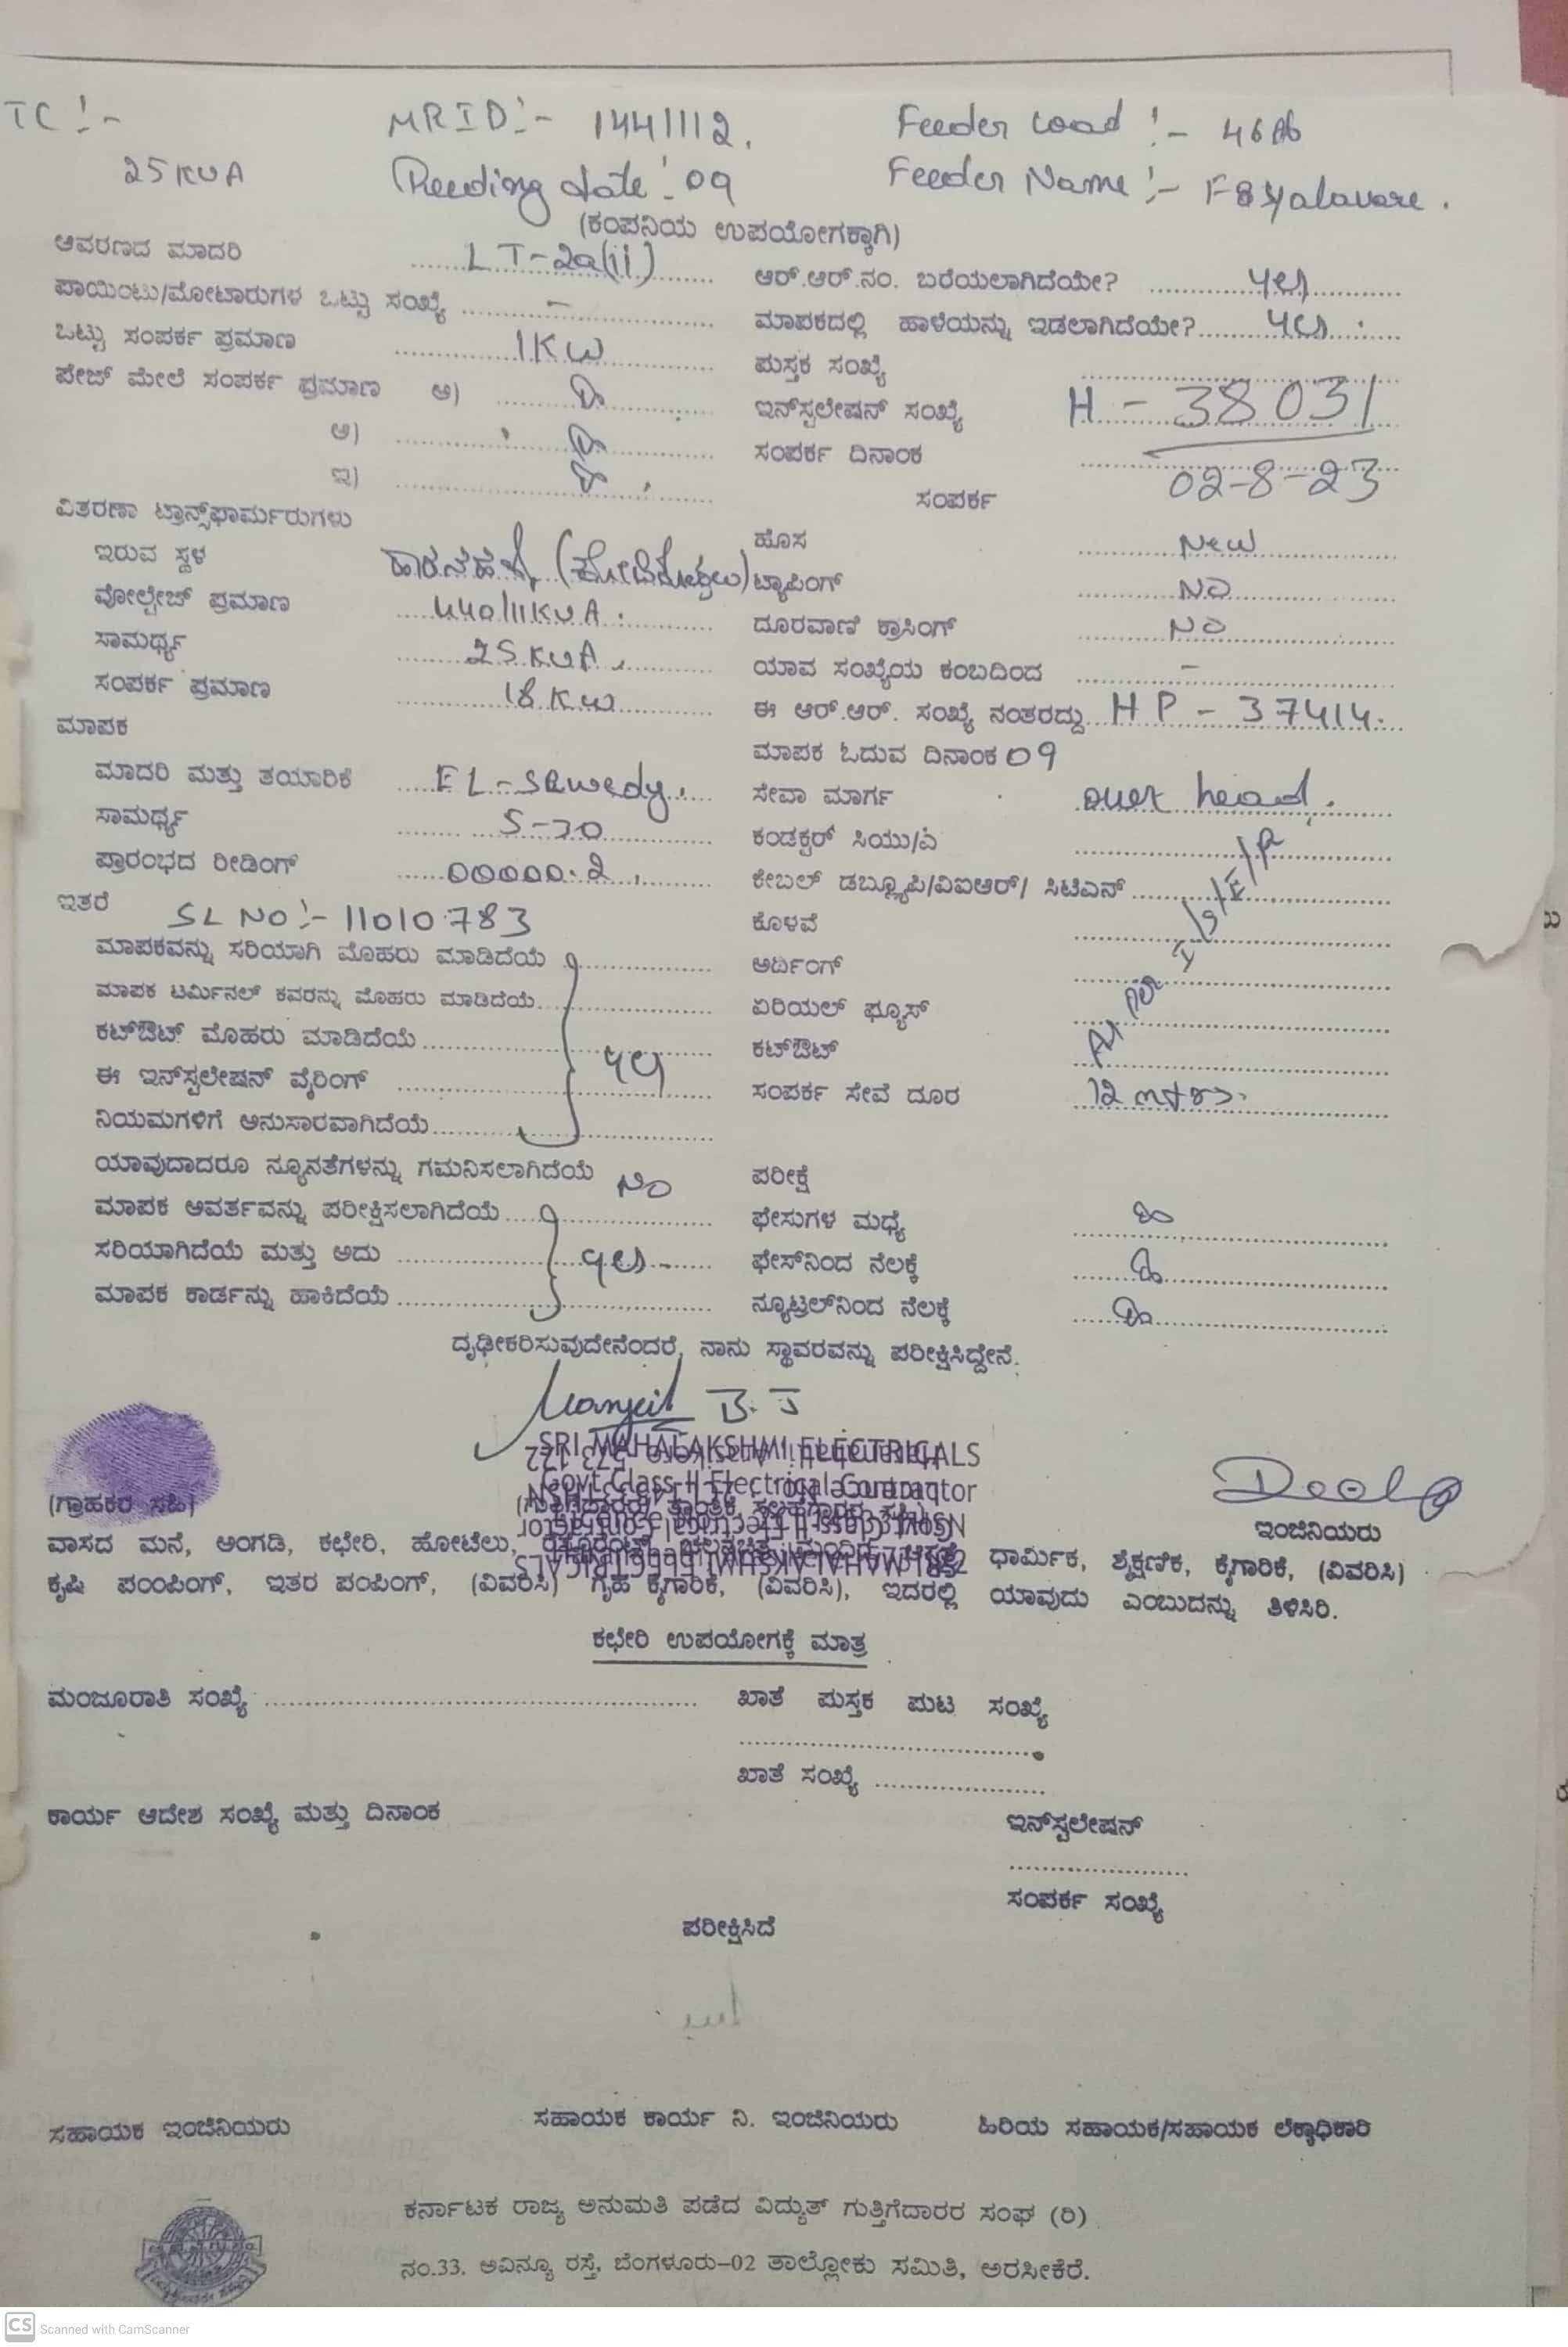 TC :-
MRID :- 1441112.
Feeder Load :- 46
25 KVA
Reeding date :- 09
Feeder Name :- F8 yalavare .
(ಕಂಪನಿಯ ಉಪಯೋಗಕ್ಕಾಗಿ)
ಆವರಣದ ಮಾದರಿ LT-2a(ii)
ಆರ್.ಆರ್.ನಂ. ಬರೆಯಲಾಗಿದೆಯೇ? yes
ಪಾಯಿಂಟು/ಮೋಟಾರುಗಳ ಒಟ್ಟು ಸಂಖ್ಯೆ -
ಮಾಪಕದಲ್ಲಿ ಹಾಳೆಯನ್ನು ಇಡಲಾಗಿದೆಯೇ? yes
ಒಟ್ಟು ಸಂಪರ್ಕ ಪ್ರಮಾಣ 1KW
ಪುಸ್ತಕ ಸಂಖ್ಯೆ
ಪೇಜ್ ಮೇಲೆ ಸಂಪರ್ಕ ಪ್ರಮಾಣ ಅ)
ಇನ್‌ಸ್ಟಲೇಷನ್ ಸಂಖ್ಯೆ H - 38031
ಆ)
ಸಂಪರ್ಕ ದಿನಾಂಕ 02-8-23
ಇ)
ಸಂಪರ್ಕ
ವಿತರಣಾ ಟ್ರಾನ್ಸ್‌ಫಾರ್ಮರುಗಳು
ಇರುವ ಸ್ಥಳ
ಹೊಸ New
ಟ್ಯಾಪಿಂಗ್ NO
ವೋಲ್ಟೇಜ್ ಪ್ರಮಾಣ 440/11KVA .
ದೂರವಾಣಿ ಕ್ರಾಸಿಂಗ್ NO
ಸಾಮರ್ಥ್ಯ 25 KVA .
ಯಾವ ಸಂಖ್ಯೆಯ ಕಂಬದಿಂದ -
ಸಂಪರ್ಕ ಪ್ರಮಾಣ 18 KW
ಈ ಆರ್.ಆರ್. ಸಂಖ್ಯೆ ನಂತರದ್ದು HP - 37414.
ಮಾಪಕ
ಮಾಪಕ ಓದುವ ದಿನಾಂಕ 09
ಮಾದರಿ ಮತ್ತು ತಯಾರಿಕೆ EL-Sewedy.
ಸೇವಾ ಮಾರ್ಗ over head .
ಸಾಮರ್ಥ್ಯ 5-30
ಕಂಡಕ್ಟರ್ ಸಿಯು/ಎ
ಪ್ರಾರಂಭದ ರೀಡಿಂಗ್ 00000.2 .
ಕೇಬಲ್ ಡಬ್ಲ್ಯೂಪಿ/ವಿಐಆರ್/ ಸಿಟಿಎಸ್
ಇತರೆ SL NO :- 11010783
ಕೊಳವೆ
ಮಾಪಕವನ್ನು ಸರಿಯಾಗಿ ಮೊಹರು ಮಾಡಿದೆಯೆ
ಅರ್ದಿಂಗ್
ಮಾಪಕ ಟರ್ಮಿನಲ್ ಕವರನ್ನು ಮೊಹರು ಮಾಡಿದೆಯೆ
ಏರಿಯಲ್ ಫ್ಯೂಸ್
ಕಟ್‌ಔಟ್ ಮೊಹರು ಮಾಡಿದೆಯೆ yes
ಕಟ್‌ಔಟ್
ಈ ಇನ್‌ಸ್ಟಲೇಷನ್ ವೈರಿಂಗ್
ಸಂಪರ್ಕ ಸೇವೆ ದೂರ 12 mtrs
ನಿಯಮಗಳಿಗೆ ಅನುಸಾರವಾಗಿದೆಯೆ
ಯಾವುದಾದರೂ ನ್ಯೂನತೆಗಳನ್ನು ಗಮನಿಸಲಾಗಿದೆಯೆ NO
ಪರೀಕ್ಷೆ
ಮಾಪಕ ಆವರ್ತವನ್ನು ಪರೀಕ್ಷಿಸಲಾಗಿದೆಯೆ
ಫೇಸುಗಳ ಮಧ್ಯೆ
ಸರಿಯಾಗಿದೆಯೆ ಮತ್ತು ಅದು yes
ಫೇಸ್‌ನಿಂದ ನೆಲಕ್ಕೆ
ಮಾಪಕ ಕಾರ್ಡನ್ನು ಹಾಕಿದೆಯೆ
ನ್ಯೂಟ್ರಲ್‌ನಿಂದ ನೆಲಕ್ಕೆ
ದೃಢೀಕರಿಸುವುದೇನೆಂದರೆ, ನಾನು ಸ್ಥಾವರವನ್ನು ಪರೀಕ್ಷಿಸಿದ್ದೇನೆ.
SRI MAHALAKSHMI ELECTRICALS
Govt.Class-II Electrical Contractor
(ಗ್ರಾಹಕರ ಸಹಿ)
ಇಂಜಿನಿಯರು
ವಾಸದ ಮನೆ, ಅಂಗಡಿ, ಕಛೇರಿ, ಹೋಟೆಲು, ಧಾರ್ಮಿಕ, ಶೈಕ್ಷಣಿಕ, ಕೈಗಾರಿಕೆ, (ವಿವರಿಸಿ)
ಕೃಷಿ ಪಂಂಪಿಂಗ್, ಇತರ ಪಂಪಿಂಗ್, (ವಿವರಿಸಿ) ಗೃಹ ಕೈಗಾರಿಕೆ, (ವಿವರಿಸಿ), ಇದರಲ್ಲಿ ಯಾವುದು ಎಂಬುದನ್ನು ತಿಳಿಸಿರಿ.
ಕಛೇರಿ ಉಪಯೋಗಕ್ಕೆ ಮಾತ್ರ
ಮಂಜೂರಾತಿ ಸಂಖ್ಯೆ
ಖಾತೆ ಪುಸ್ತಕ ಪುಟ ಸಂಖ್ಯೆ
ಖಾತೆ ಸಂಖ್ಯೆ
ಕಾರ್ಯ ಆದೇಶ ಸಂಖ್ಯೆ ಮತ್ತು ದಿನಾಂಕ
ಇನ್‌ಸ್ಟಲೇಷನ್
ಸಂಪರ್ಕ ಸಂಖ್ಯೆ
ಪರೀಕ್ಷಿಸಿದೆ
ಸಹಾಯಕ ಇಂಜಿನಿಯರು
ಸಹಾಯಕ ಕಾರ್ಯ ನಿ. ಇಂಜಿನಿಯರು
ಹಿರಿಯ ಸಹಾಯಕ/ಸಹಾಯಕ ಲೆಕ್ಕಾಧಿಕಾರಿ
ಕರ್ನಾಟಕ ರಾಜ್ಯ ಅನುಮತಿ ಪಡೆದ ವಿದ್ಯುತ್ ಗುತ್ತಿಗೆದಾರರ ಸಂಘ (ರಿ)
ನಂ.33. ಅವಿನ್ಯೂ ರಸ್ತೆ, ಬೆಂಗಳೂರು–02 ತಾಲ್ಲೋಕು ಸಮಿತಿ, ಅರಸೀಕೆರೆ.
CS Scanned with CamScanner